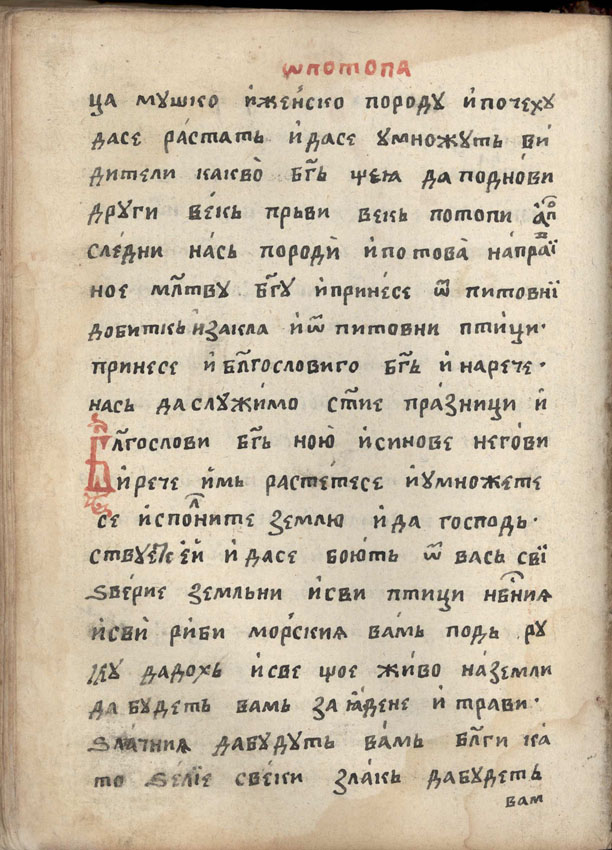 ѡпотопа
ца мушко и҆же́нско породу и҆почеху
дасе ра́стать и҆дасе умножуть ви́
дители какво̀ бг҃ь ѱею да подно́ви
други ве́кь прьви векь потопи а҆по
сле́дни на́сь породѝ и҆потова̀ на́праї
ное мл҃тву бг҃у и҆прине́се ѿ питовнї
добиткь и҆закла и҆ѿ питовни птици·
принесе и҆ бл҃гословиго бг҃ь и҆ наре́че·
нась да слу́жимо ст҃ие пра́зници и҆
бл҃гослови бг҃ь ною̀ и҆синове него́ви
и҆ рече и҆мь расте́тесе и҆умножете
се и҆споⷧ҇ните землю и҆да господь·
ствуете е҆й и҆ дасе бою́ть ѿ вась свї
ѕве́рие земльни и҆сви птици нб҃ния
и҆свѝ ри́би мо́рския ва́мь подь ру
ку дадохь и҆све ѱое жи́во на́земли
да будеть вамь за ꙗ҆дене и҆ трави·
ѕла́чния дабудуть ва́мь бл҃ги ка́
то ѕе́лїе све́ки злакь да́будеть
вам